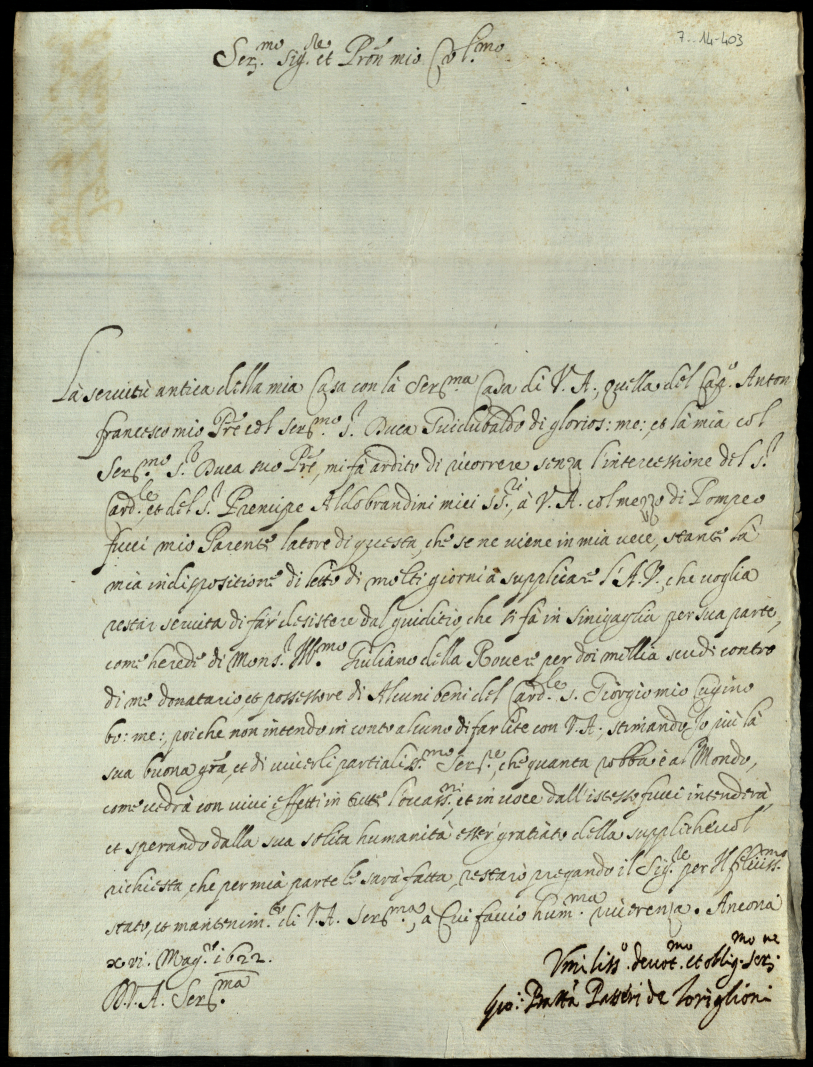 7. 14-403
Ser.mo Sig.re et Prōn mio Col.mo
La seruitù antica della mia Casa con la Ser.ma Casa di V.A., quella del Cap.o Anton
francesco mio Prē col Ser.mo S.r Duca Guidubaldo di glorios: me: et la mia col
Ser.mo S.r Duca suo Prē, mi fà ardito di ricorrere senza l'intercessione del S.r
Card.le et del S.r Prencipe Aldobrandini miei SS.ri, à V.A. col mezzo di Pompeo
fucci mio Parente latore di questa, che se ne viene in mia uece, stante la
mia indispositione di letto di molti giorni à supplicare l'A.V., che uoglia
restar seruita di far desistere dal giuditio che si fà in Sinigaglia per sua parte,
come herede di Mons.r Ill.mo Giuliano della Rouere per doi millia scudi contro
di me donatario et possessore di Alcuni beni del Card.le S. Giorgio mio Cugino
bo: me:, poiche non intendo in conto alcuno di far lite con V.A., stimando io più la
sua buona grā, et di uiuerli partialiss.mo Ser.re, che quanta robba è al Mondo,
come uedrà con viui effetti in tutte l'occas.ni, et in uoce dall'istesso fucci intenderà
et sperando dalla sua solita humanità esser gratiato della supplicheuol'
richiesta, che per mia parte le sarà fatta, restarò pregando il Sig.re per il feliciss.mo
stato, et mantenim.to di V.A. Ser.ma, à Cui faccio hum.ma riuerenza. Ancona
xvi. Mag.o 1622.
D.V.A. Ser.ma
Vmiliss.o deuot.mo et oblig.mo ser.ne
Gio: Batta Passeri de Toriglioni